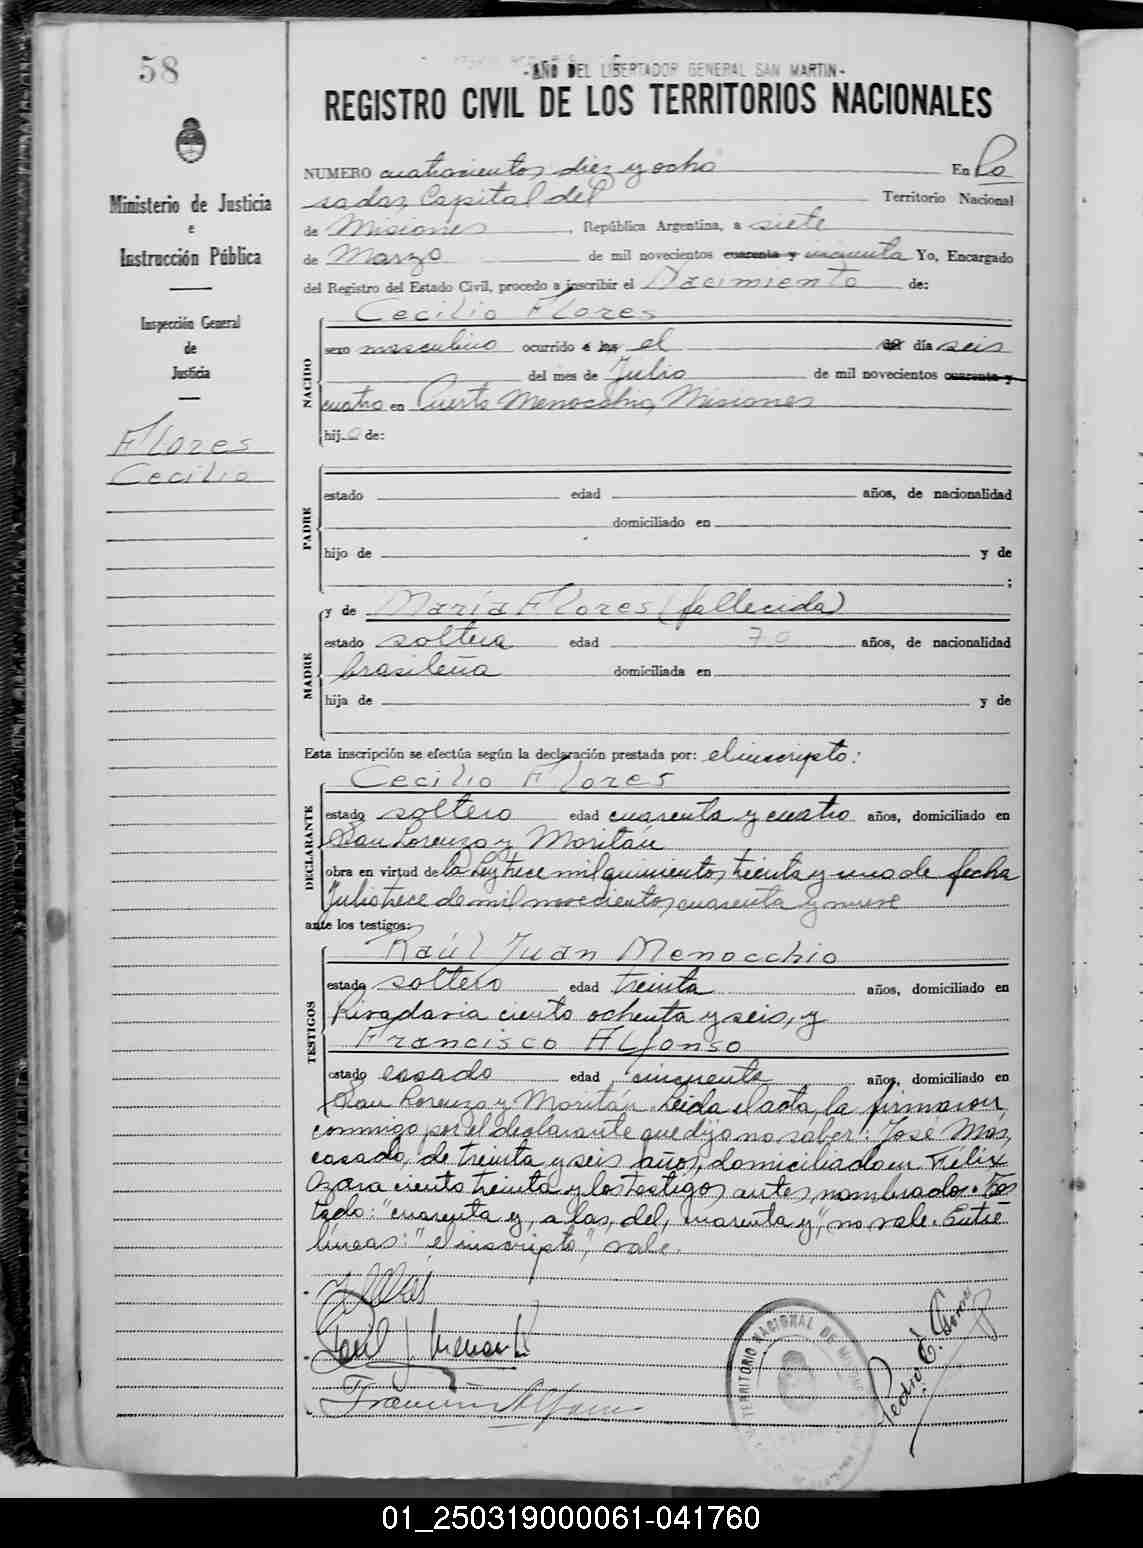 58
-AÑO DEL LIBERTADOR GENERAL SAN MARTIN-
REGISTRO CIVIL DE LOS TERRITORIOS NACIONALES
Ministerio de Justicia
e
Instrucción Pública
Inspección General
de
Justicia
Flores
Cecilio
NUMERO cuatrocientos diez y ocho En Po
sadas, Capital del Territorio Nacional
de Misiones, República Argentina, a siete
de Marzo de mil novecientos cuarenta y cincuenta Yo, Encargado
del Registro del Estado Civil, procedo a inscribir el Nacimiento de:
NACIDO
Cecilio Flores
sexo masculino ocurrido a las el del día seis
del mes de Julio de mil novecientos cuarenta y
cuatro en Puerto Menocchio, Misiones
hijo de:
PADRE
estado edad años, de nacionalidad
domiciliado en
hijo de y de
;
MADRE
y de María Flores (fallecida)
estado soltera edad 70 años, de nacionalidad
brasileña domiciliada en
hija de y de
Esta inscripción se efectúa según la declaración prestada por: el inscripto:
DECLARANTE
Cecilio Flores
estado soltero edad cuarenta y cuatro años, domiciliado en
San Lorenzo y Moritán
obra en virtud de la Ley trece mil quinientos treinta y uno de fecha
Julio trece de mil novecientos cuarenta y nueve
ante los testigos:
TESTIGOS
Raúl Juan Menocchio
estado soltero edad treinta años, domiciliado en
Rivadavia ciento ochenta y seis, y
Francisco Alfonso
estado casado edad cincuenta años, domiciliado en
San Lorenzo y Moritán. Leida el acta, la firmaron
conmigo por el declarante que dijo no saber: José Más,
casado, de treinta y seis años, domiciliado en Félix
Azara ciento treinta y los testigos antes nombrados. Tes
tado: "cuarenta y, a las, del, cuarenta y", no vale. Entre
líneas: "el inscripto", vale.
Raúl J. Menocchio
Francisco Alfonso
TERRITORIO NACIONAL DE
Pedro E.
01_250319000061-041760